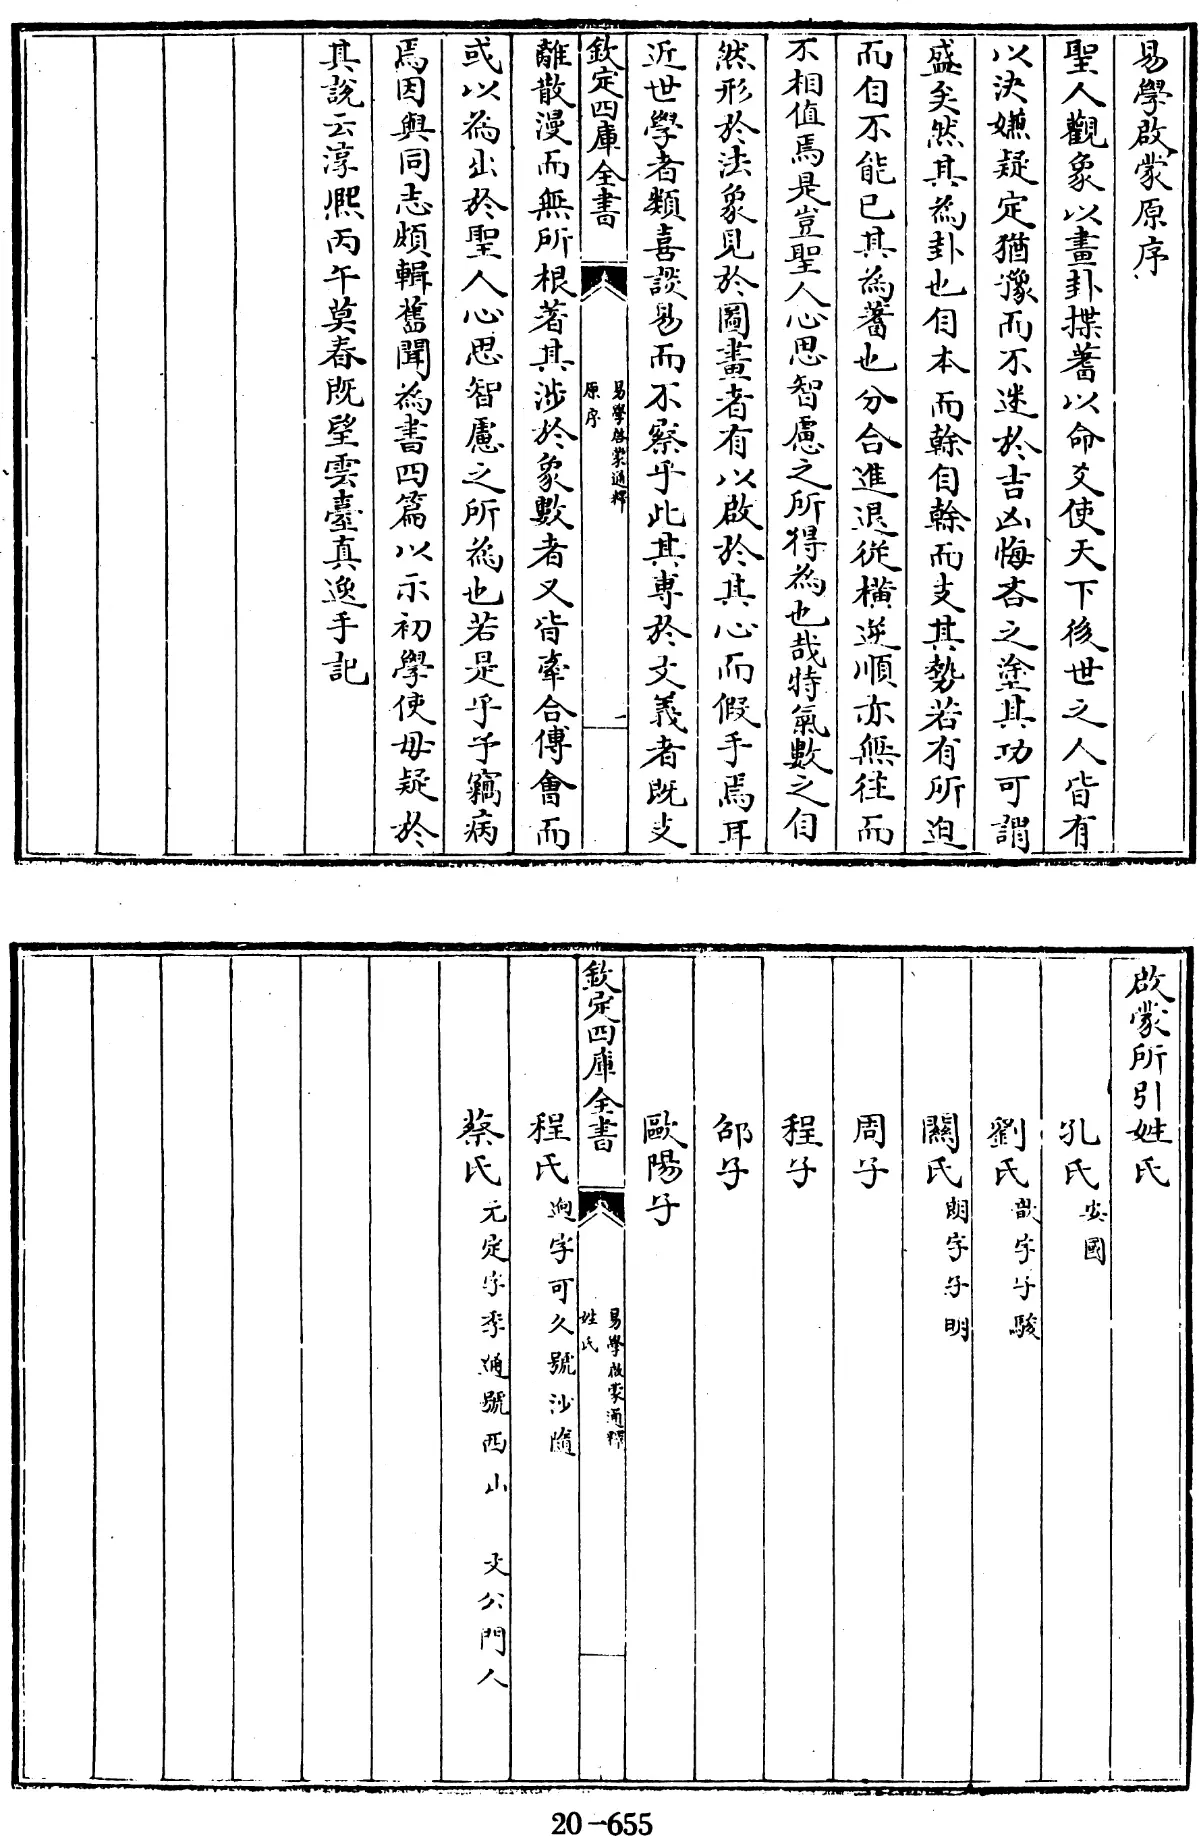 易學啟蒙原序
聖人觀象以畫卦揲蓍以命爻使天下後世之人皆有
以決嫌疑定猶豫而不迷於吉凶悔吝之塗其功可謂
盛矣然其為卦也自本而榦自榦而支其勢若有所迫
而自不能已其為蓍也分合進退從橫逆順亦無往而
不相值焉是豈聖人心思智慮之所得為也哉特氣數之自
然形於法象見於圖畫者有以啟於其心而假手焉耳
近世學者類喜談易而不察乎此其專於文義者既支
欽定四庫全書
易學啓蒙通釋
原序
一
離散漫而無所根著其涉於象數者又皆牽合傅會而
或以為出於聖人心思智慮之所為也若是乎予竊病
焉因與同志頗輯舊聞為書四篇以示初學使毋疑於
其說云淳熙丙午莫春既望雲臺真逸手記
啟蒙所引姓氏
孔氏安國
劉氏歆字子駿
關氏朗字子明
周子
程子
邵子
歐陽子
欽定四庫全書
易學啟蒙通釋
姓氏
程氏迥字可久號沙隨
蔡氏元定字季通號西山 文公門人
20-655